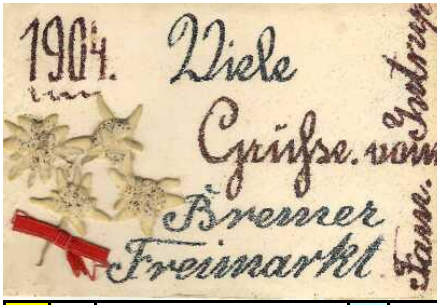 1904.
Viele
Grühse. vom
Bremer
Freimarkt
Fam. Gutrup